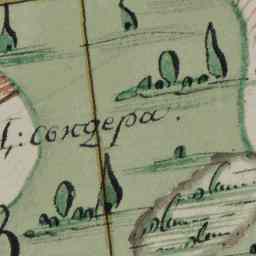 : сондера.